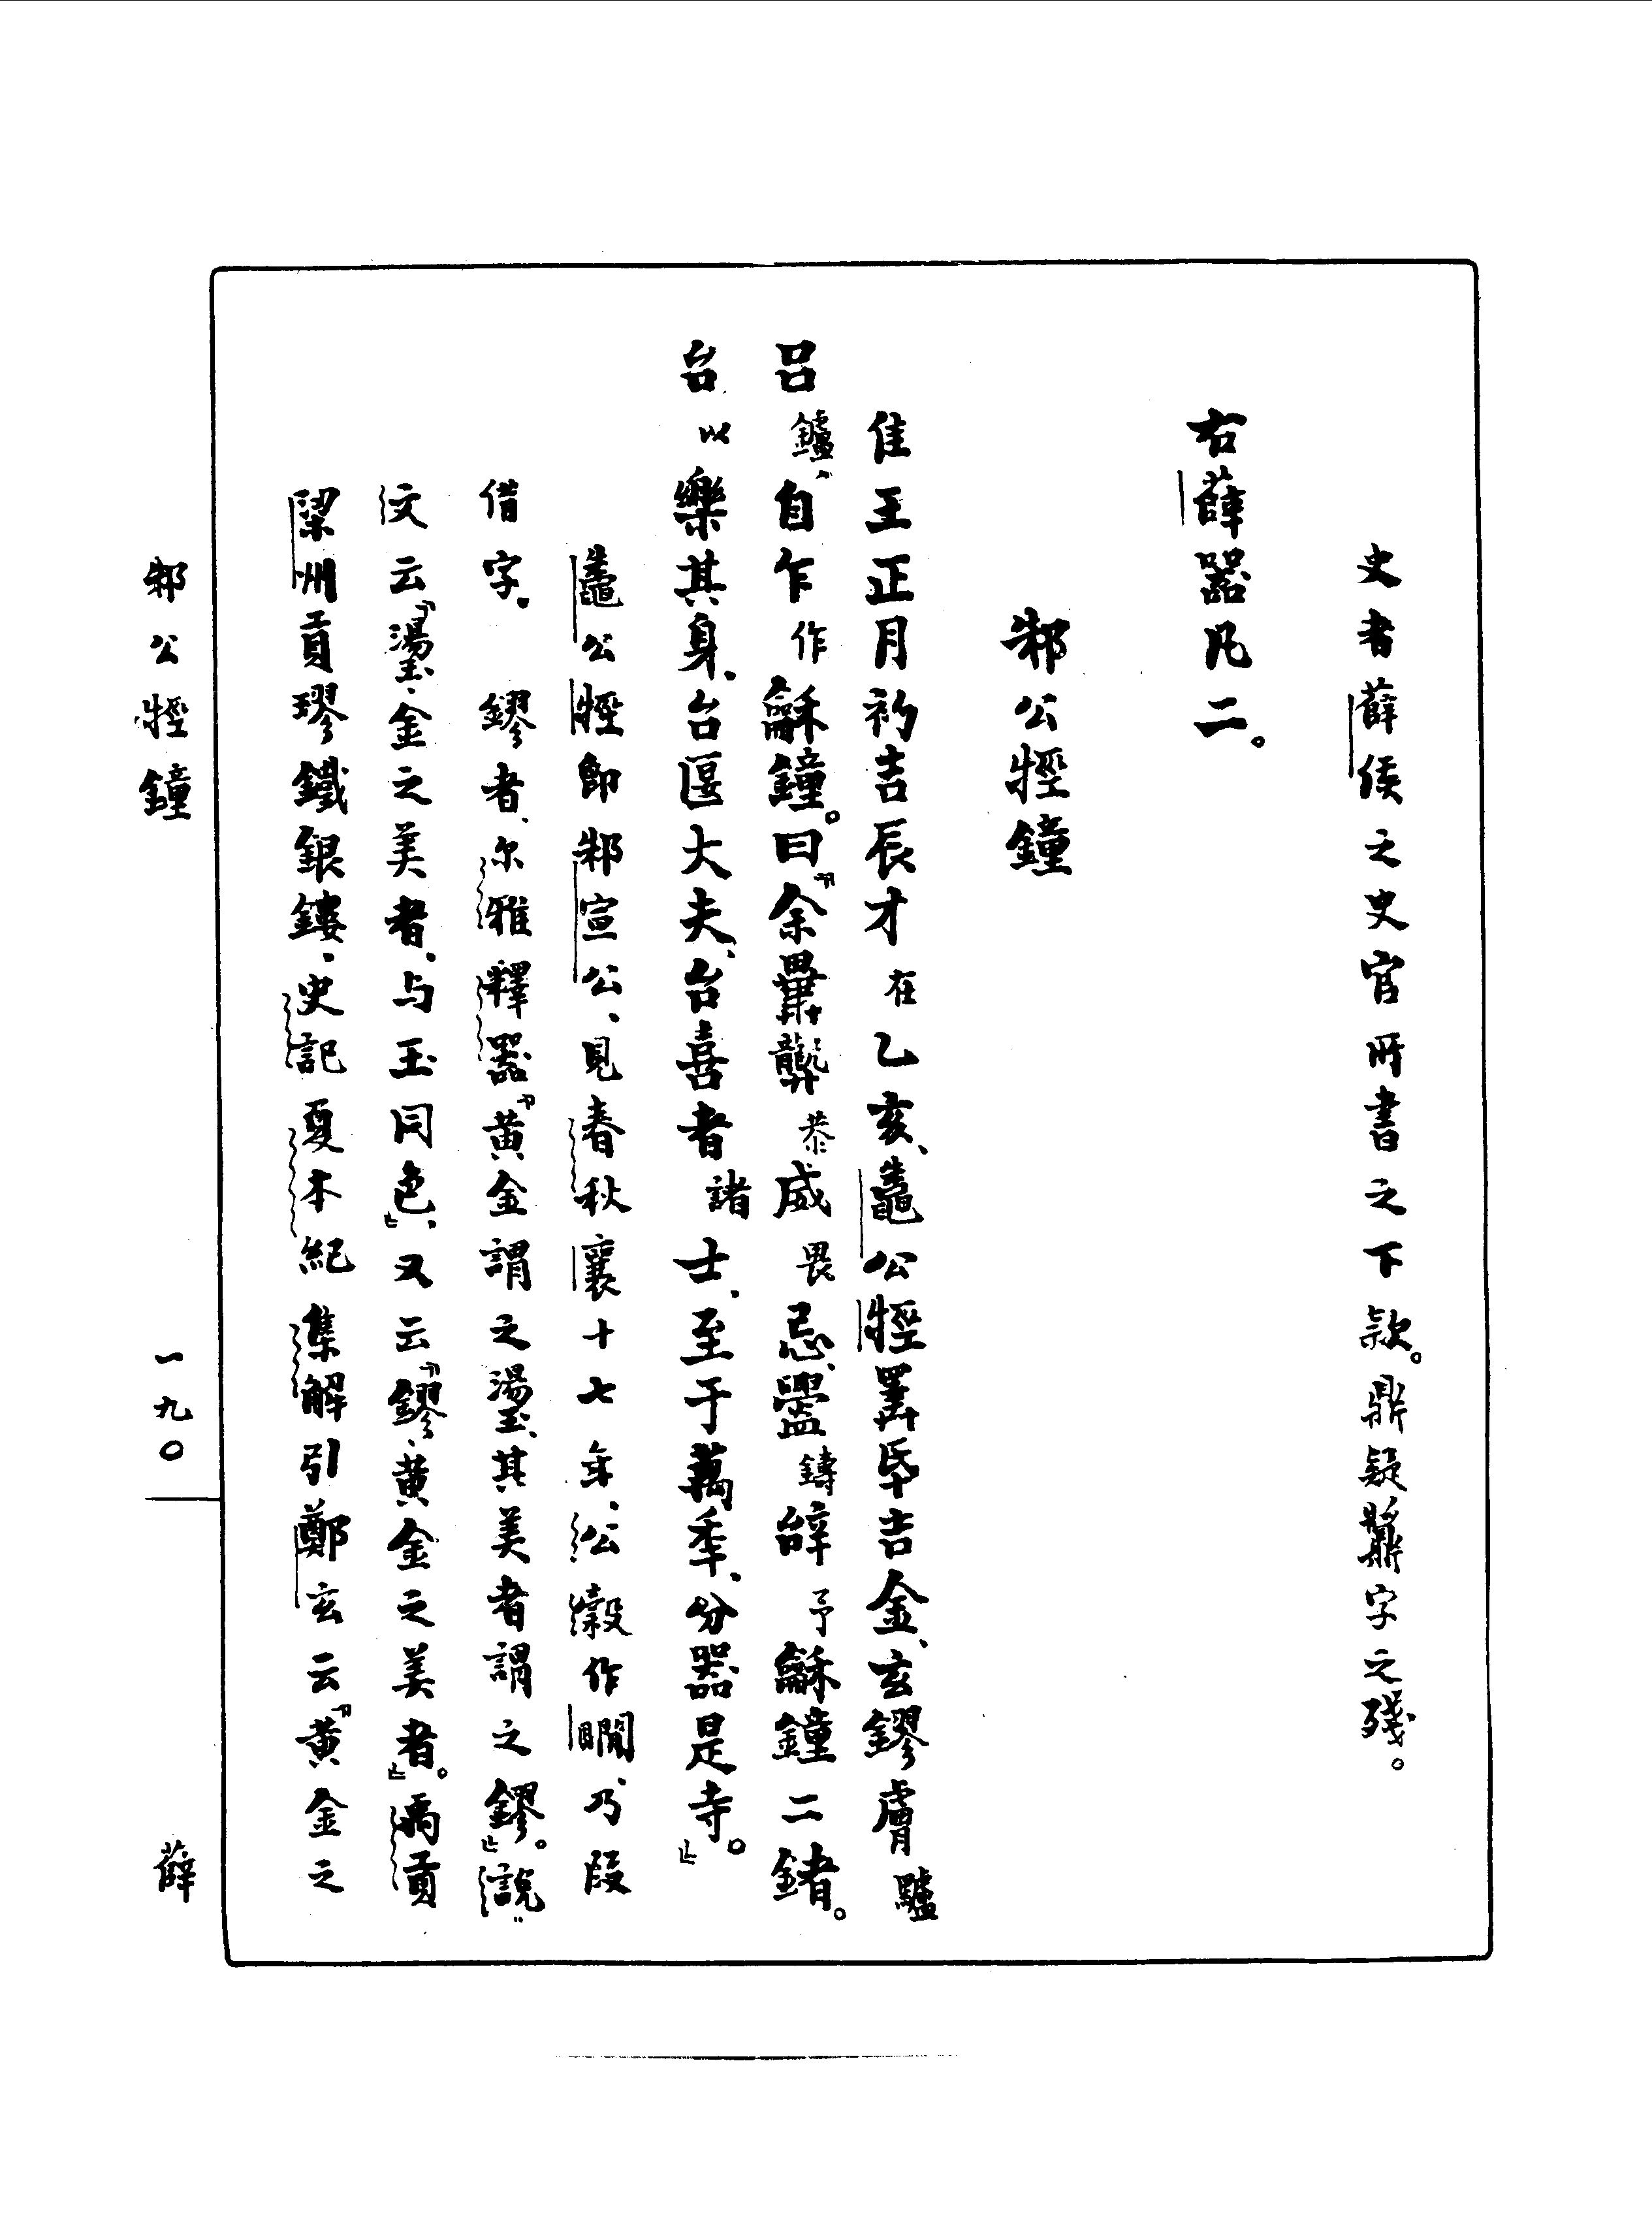 史者薛侯之史官所書之下款。鼎疑鼏字之殘。
右薛器凡二。
邾公牼鐘
隹王正月初吉辰才在乙亥、鼄公牼𢍰氒吉金、玄鏐膚鑪
呂鑪、自乍作龢鐘。曰『余畢龏恭威畏忌、𥂴鑄辝予龢鐘二鍺。
台以樂其身、台匽大夫、台喜者諸士、至于萬年、分器是寺。』
鼄公牼即邾宣公、見春秋襄十七年、公穀作瞷、乃叚
借字。鏐者、尔雅釋器『黃金謂之璗、其美者謂之鏐。』說
文云『璗、金之美者、与玉同色』、又云『鏐、黃金之美者』。禹貢
梁州貢璆鐵銀鏤、史記夏本紀集解引鄭玄云『黃金之
邾公牼鐘
一九〇
薛